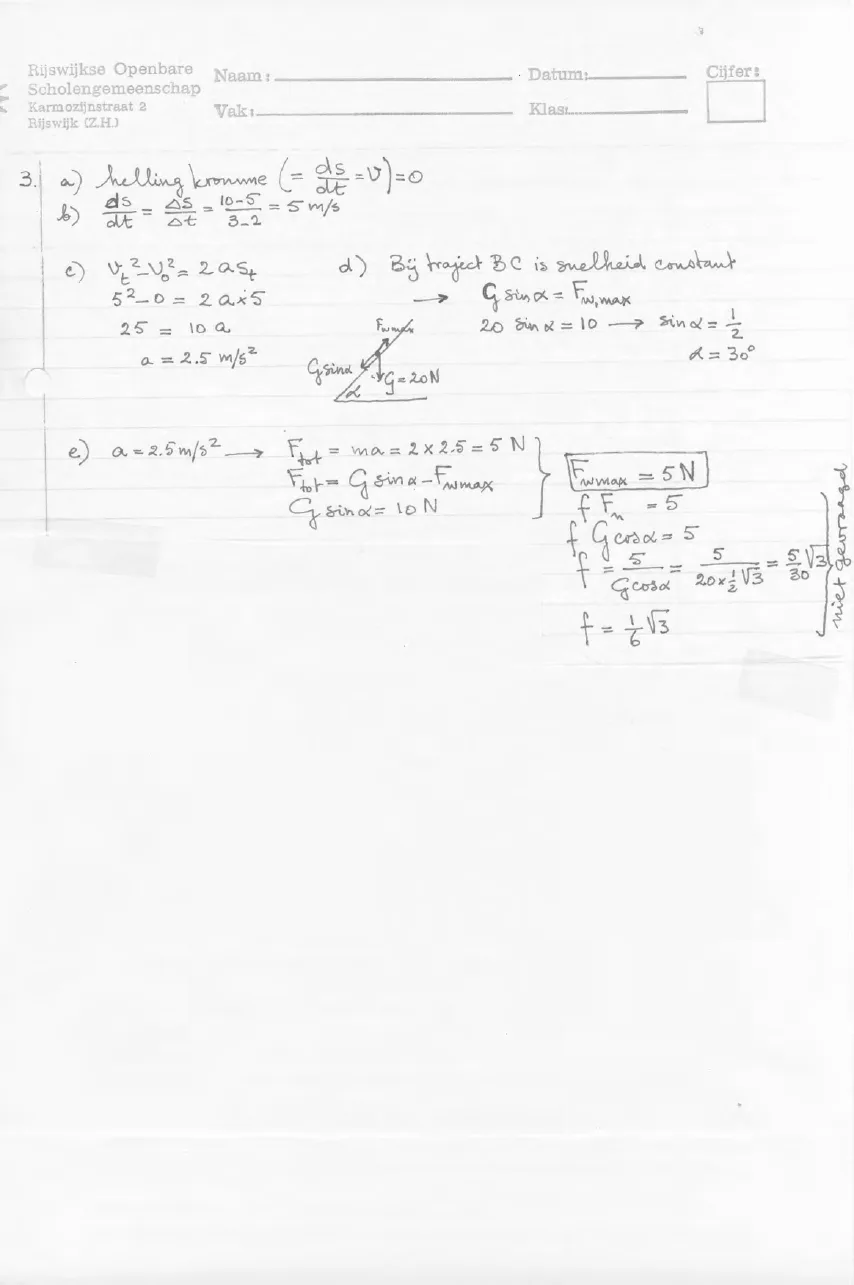 Rijswijkse Openbare
Scholengemeenschap
Karmozijnstraat 2
Rijswijk (Z.H.)
Naam: Datum: Cijfer:
Vak: Klas:
3. a) helling kromme (= ds/dt = v) = 0
b) ds/dt = Δs/Δt = 10-5/3-2 = 5 m/s
c) v_t² - v_o² = 2 a s_t
5² - 0 = 2 a x 5
25 = 10 a
a = 2.5 m/s²
d) Bij traject BC is snelheid constant
→ G sin α = F_w,max
20 sin α = 10 → sin α = 1/2
α = 30°
F_w max
G sin α
G = 20 N
α
e) a = 2.5 m/s² → F_tot = ma = 2 x 2.5 = 5 N
F_tot = G sin α - F_w max
G sin α = 10 N
F_w max = 5 N
f F_n = 5
f G cos α = 5
f = 5/G cos α = 5/20 x ½√3 = 5/30 √3
f = 1/6 √3
niet gevraagd